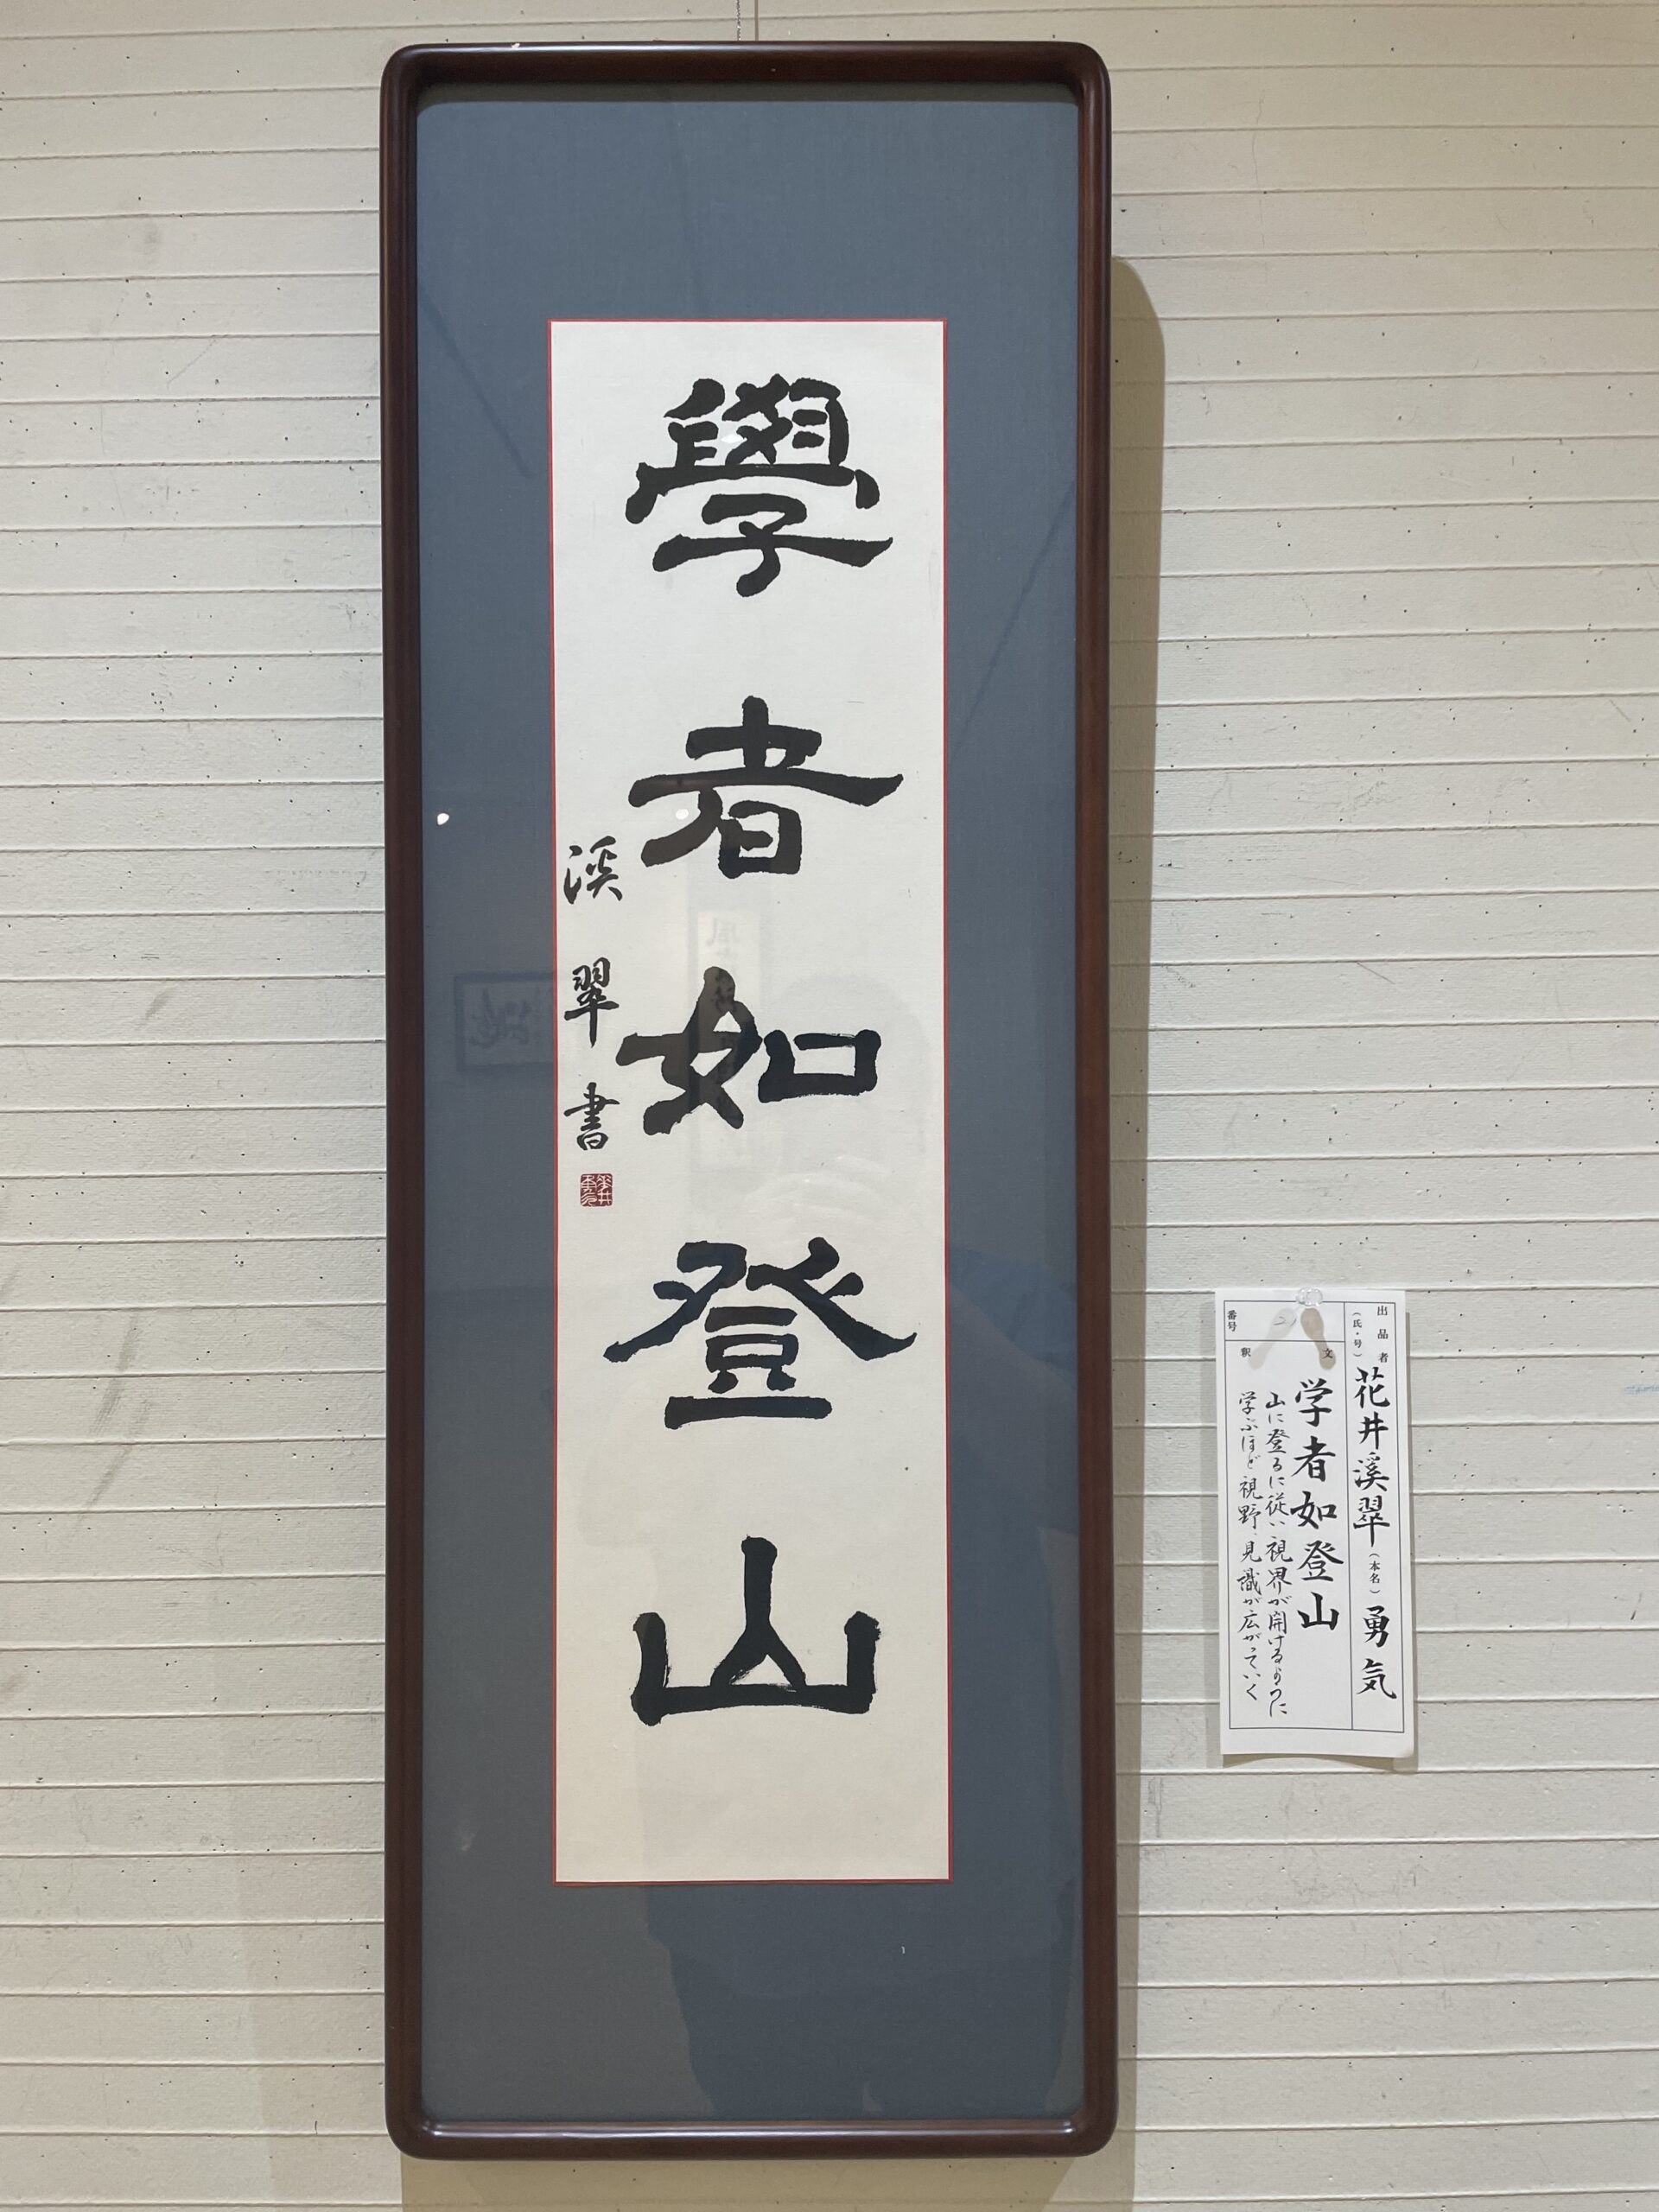 學者如登山
渓翠書
出品者
(氏・号)
花井渓翠(本名)勇気
番号
釈文
学者如登山
山に登るに従い視界が開けるように
学ぶほど視野、見識が広がっていく